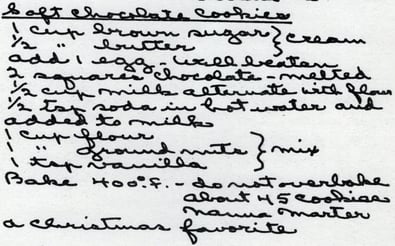 Soft Chocolate Cookies
1 cup brown sugar } cream
1/2 " butter
add 1 egg - well beaten
2 squares chocolate - melted
1/2 cup milk alternate with flour
1/2 tsp soda in hot water and
added to milk
1 cup flour
1 " ground nuts } mix
1 tsp vanilla
Bake 400° F. - do not overbake
about 45 cookies
Nanna Marter
a Christmas favorite